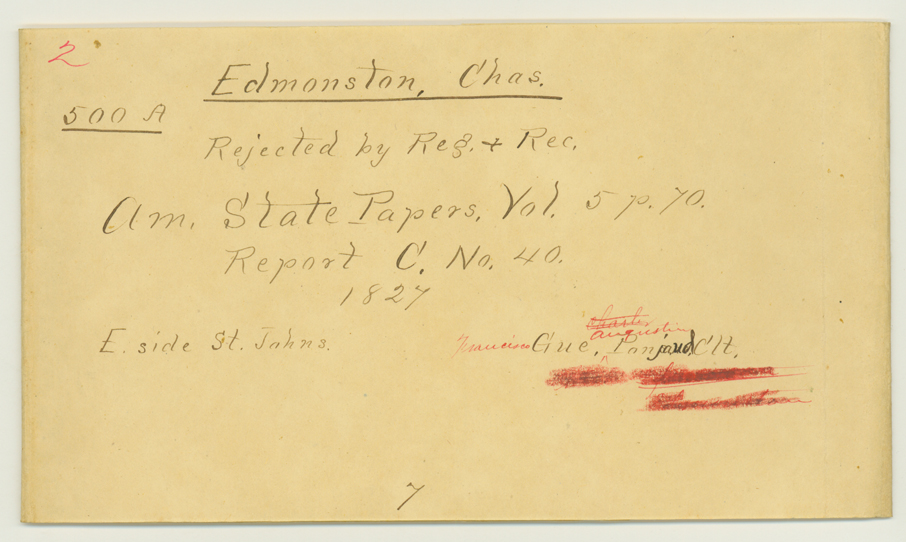 2
Edmonston, Chas.
500 A
Rejected by Reg. & Rec.
Am. State Papers, Vol. 5 p. 70.
Report C. No. 40.
1827
charles
augustin
E. side St. Johns. Francisco Gue, Ponjaud, Clt.
7